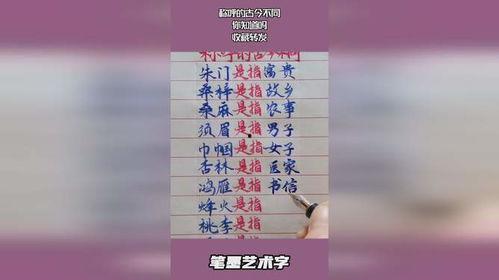 称呼的古今不同
你知道吗
收藏转发
称呼的古今不同
朱门是指富贵
桑梓是指故乡
桑麻是指农事
须眉是指男子
巾帼是指女子
杏林是指医家
鸿雁是指书信
烽火是指
桃李是指
笔墨艺术字